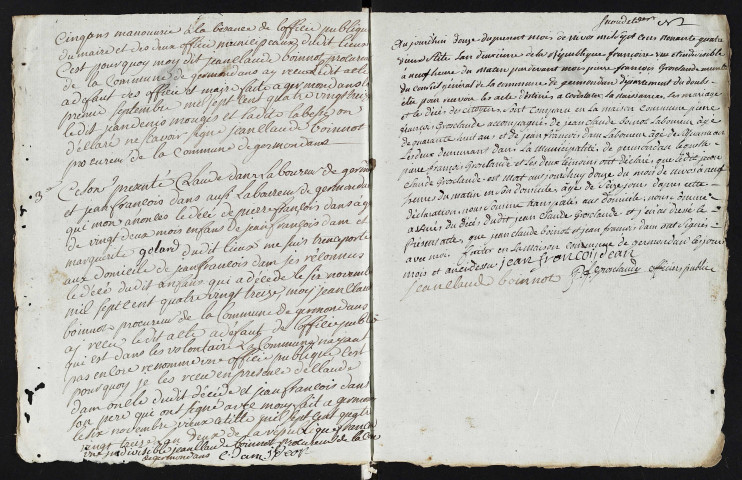 cinquns manouvrie à la besance de lofficie publique
du maire et des deux officie municipeaux dudit lieux
Cest pourquoy moy dit jean claude boinnot procureur
de la commune de germondans ay receux ledit acte
a defaut des officie et maire faite a germondans le
premie septembre mil sept cent quatre vingt treize
ledit jean denis mougès et
dellare ne savoir signe jean claude boinnot
procureur de la commune de germondans
3
Ce son presenté Claude dans laboureux de germondans
et jean francois dans aussi laboureux de germondans
qui mon anoncés le décé de pierre francois dans agé
de vingt deux mois enfans de jean francois dam et
marguerite golard dudit lieux me suis trensporté
aux domicile de jean francois dam jes reconnus
le décé dudit enfans qui a decede le six novembre
mil sept cent quatre vingt treize moy jean claude
boinnot procureur de la Commune de germondans
ay receu ledit acte a defaut de lofficie public
qui est dans les volontaire la Commune nayant
pas encore renommé une officie publique Cest
pourquoy je les receu en presence de Claude
dam oncle dudit décédé et jean francois dans
son pere qui ont signé avec moy fait a germondans
le six novembre vieux stille mil sept cent quatre
vingt treize lan deux de la republique francoise
une indivisible jean claude boinnot procureur de la Comune
de germondans C. dam
aujourdhuy douze du present mois de nivose mil sept cens nonante quatre
vieux stile lan deuxieme de la republique francoise une et indivisible
a neuf heure du matin pardevant moy pierre francois Grosclaude membre
du conseil general de la commune de germondans département du doubs
élu pour recevoir les acte destinés a constater la naissance, les mariage
et le décés des citoyens. sont comparu en la maison commune pierre
francois Grosclaude accompagné de jean claude boinnot laboureur âgé
de quarante huit ans et de jean francois dam laboureur âgé de
Les deux demeurans dans la municipalité de germondans lequelle
pierre francois Grosclaude et les deux temoins ont déclaré que
claude Grosclaude est mort aujourdhuy douze du mois de nivose a neuf
heure du matin en son domicile âgé de dapres cette
déclaration nous sommes transporté aux domicile nous sommes
assurés du décés dudit jean claude Grosclaude et jen ai dressé le
present acte que jean claude boinnot et jean francois dam ont signés
avec moy. fait en la maison commune de germondans les jours
mois et an cidessus jean francois dam
jean claude boinnot p.f. Grosclaude officier public